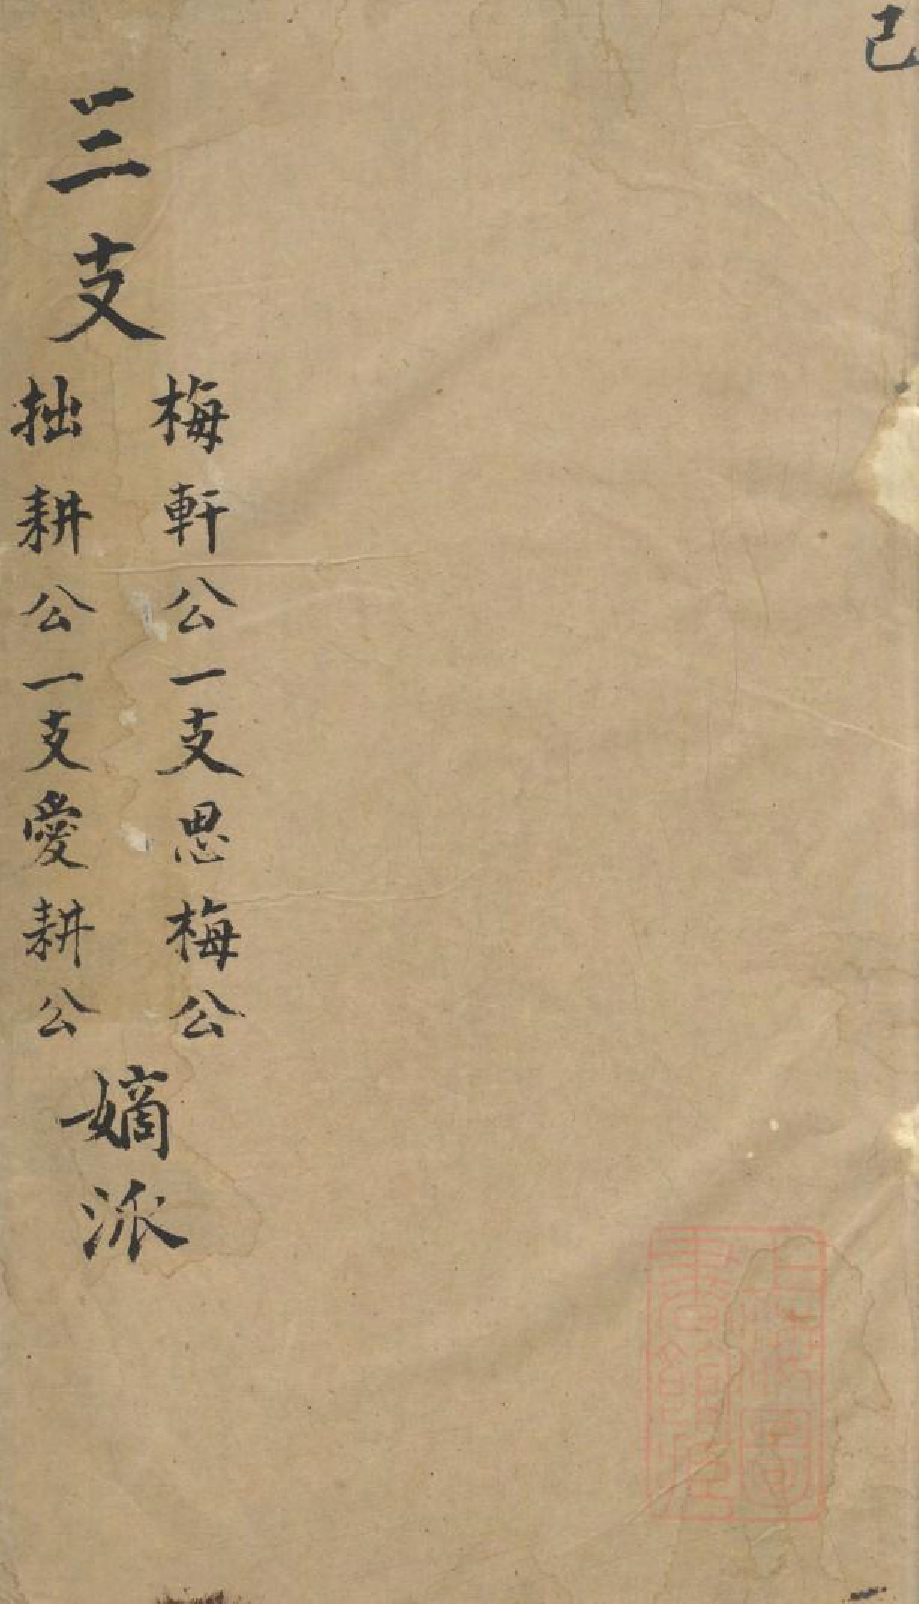 己
三支
梅軒公一支思梅公
拙耕公一支愛耕公
嫡派